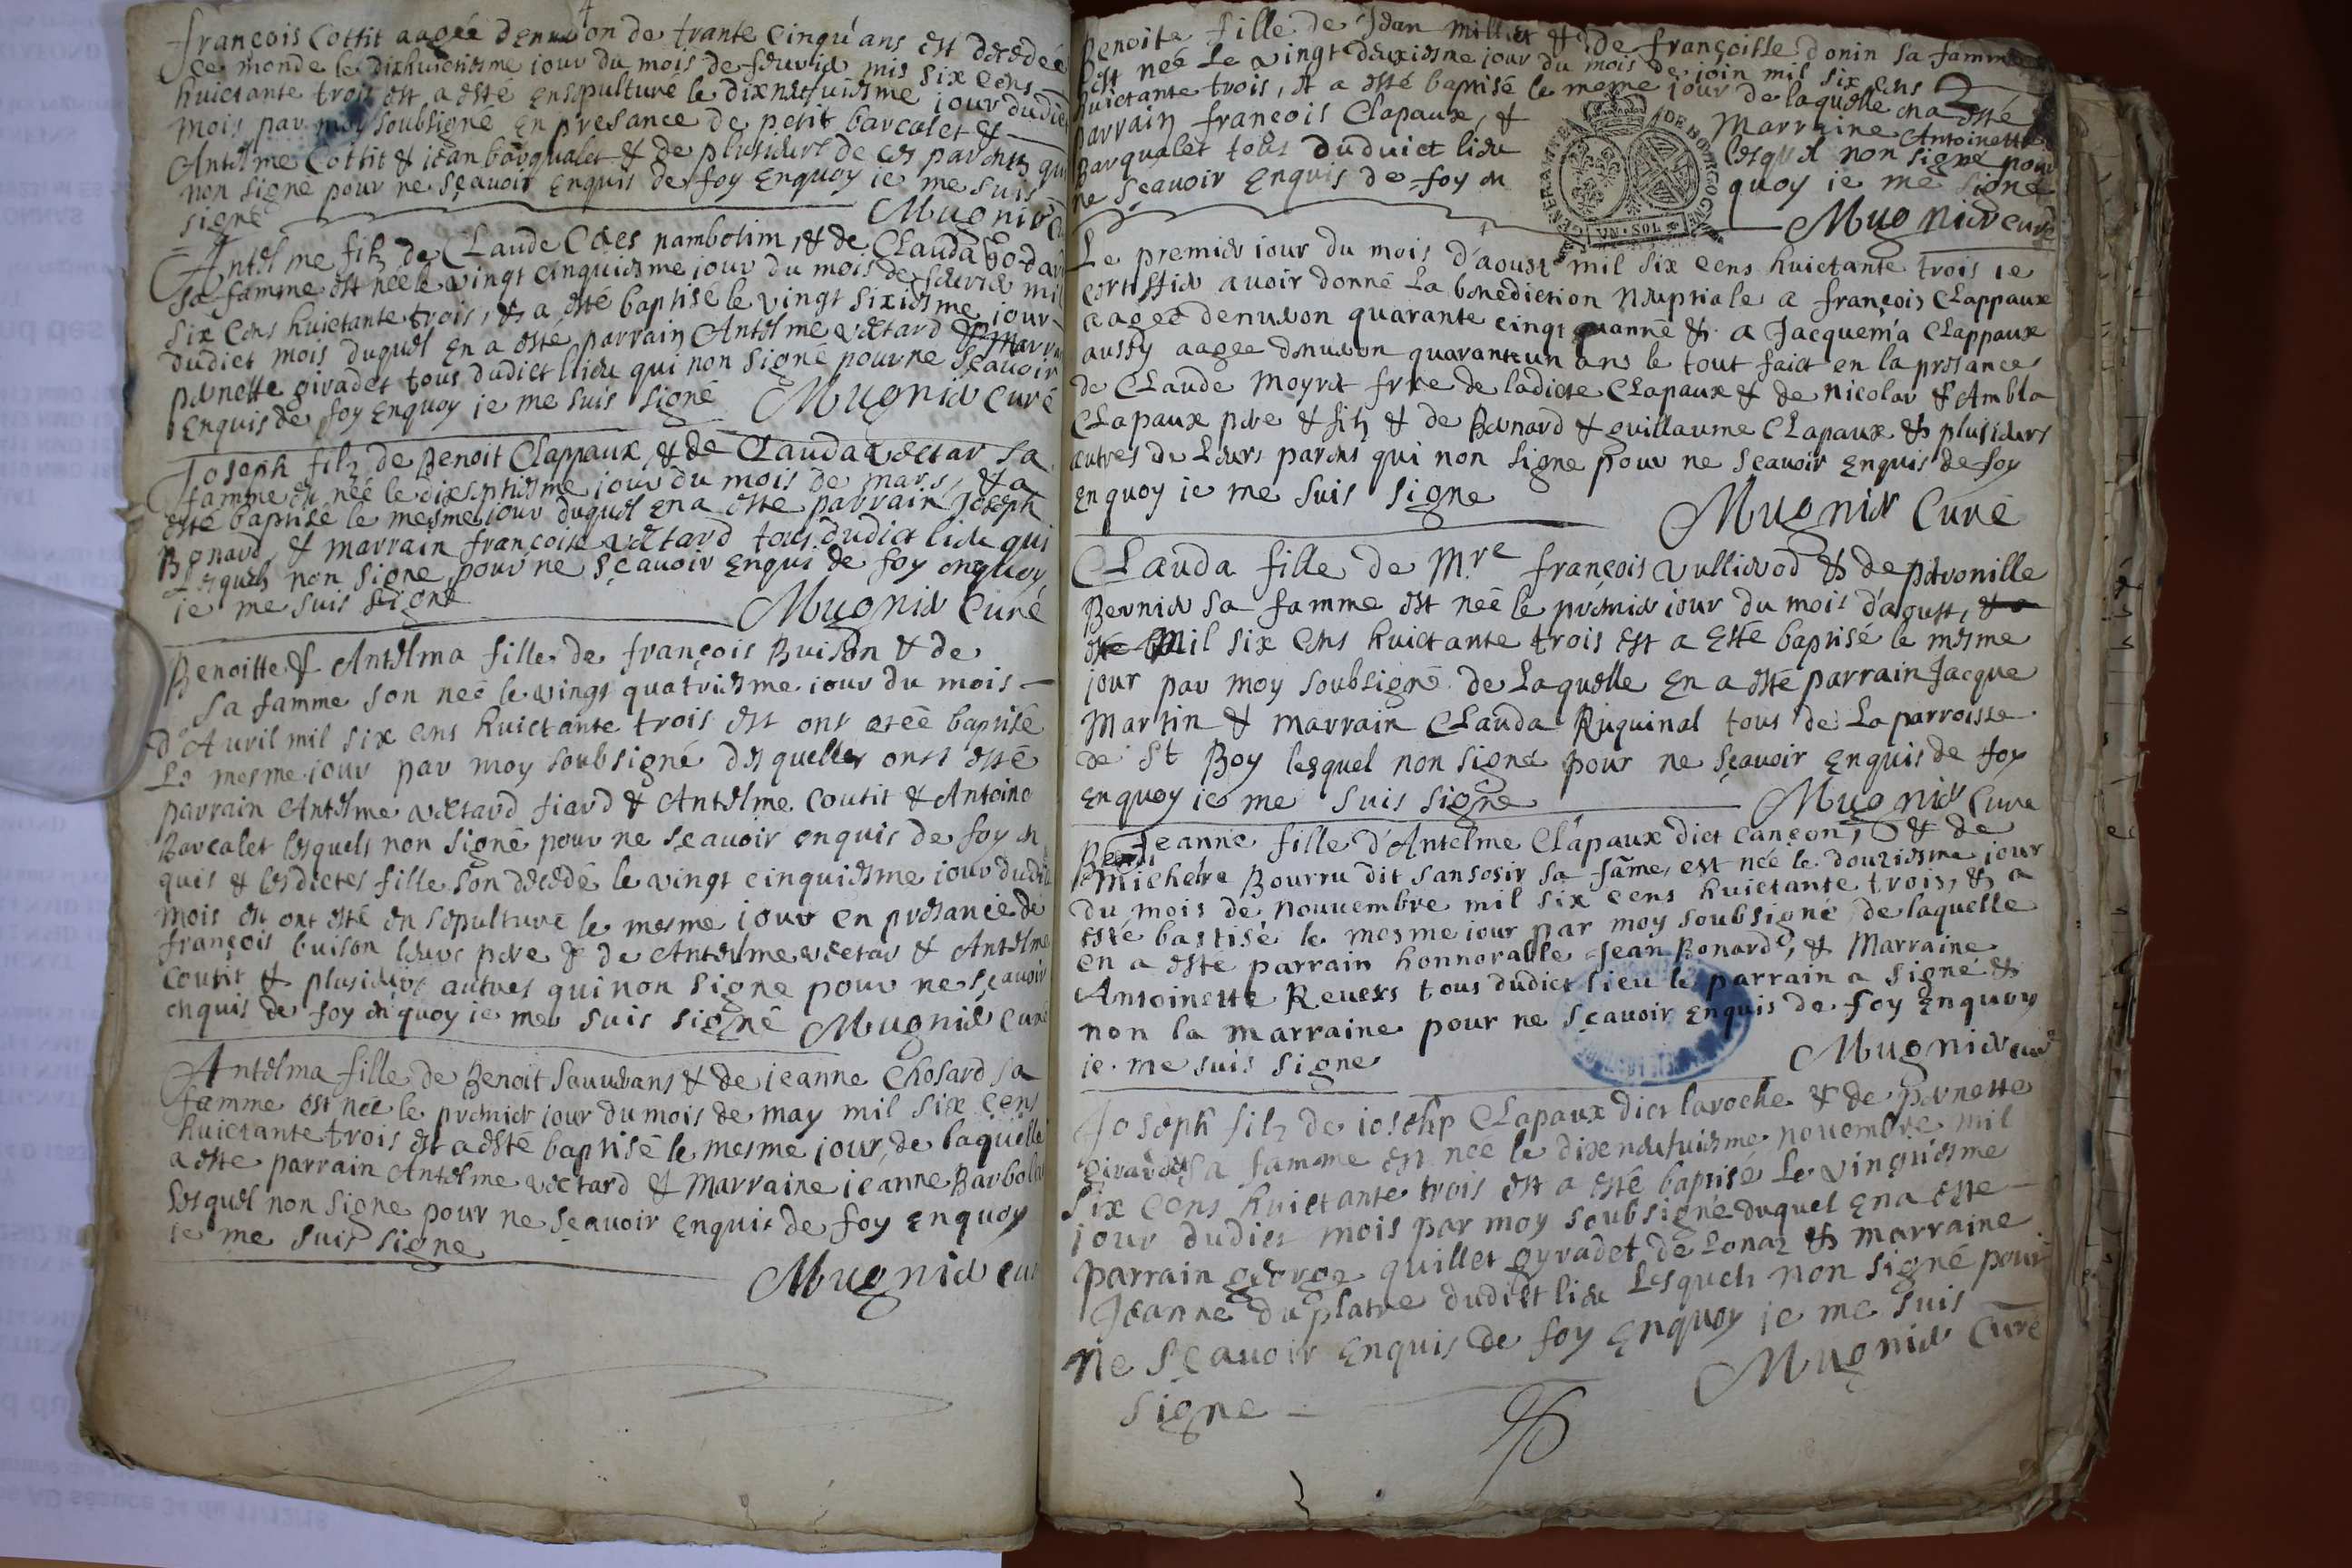 françois Cottit aagée denuiron de trante cinqu'ans est decedée
ce monde le dixhuictiesme iour du mois de feuvrier mis six cens
huictante trois est a esté ensepulturé le dixneufuiesme iour dudict
mois par moy soubsigné en presance de petit barcalet &
Antelme Cottit & iean borqualet & de plusieurs de ces parents qui
non signé pour ne sçauoir enquis de foy enquoy ie me suis
signé Mugnier
Antelme filz de Claude Caes nambotim, & de Clauda
sa famme est née le vingt cinquiesme iour du mois de feuvrier mil
six cens huictante trois, & a esté baptisé le vingt sixiesme iour
dudict mois duquel en a esté parrain Antelme vectard & marr
pernette giradet tous dudict lieu qui non signé pour ne sçauoir
enquis de foy enquoy ie me suis signé Mugnier Curé
Joseph filz de Benoit Clappaux, & de Clauda vectar sa
famme est née le dixseptiesme iour du mois de mars, & a
esté baptisé le mesme iour duquel en a esté parrain Joseph
Bonard, & marrain françoise vectard tous dudict lieu qui
Lesquels non signe pour ne sçauoir enqui de foy enquoy
ie me suis signé Mugnier Curé
Benoitte & Antelma filles de françois Buison & de
sa famme son née le vingt quatriesme iour du mois
d'Auril mil six cens huictante trois est ont estée baptisé
Le mesme iour par moy soubsigné desquelles onts esté
parrain Antelme vectard fiard & Antelme Coutit & Antoine
Barcalet lesquels non signé pour ne sçauoir enquis de foy en
quis & lesdictes fille son decedé le vingt cinquiesme iour dudit
mois est ont esté en sepulture le mesme iour en presance de
françois buison leurs pere & de Antelme vectar & Antelme
Coutit & plusieurs autres qui non signe pour ne sçauoir
enquis de foy en quoy ie me suis signé Mugnier Curé
Antelma fille de Benoit Sauuerans & de ieanne Chosard sa
famme est née le premier iour du mois de may mil six cens
huictante trois est a esté baptisé le mesme iour, de laquelle
a esté parrain Antelme vectard & Marraine ieanne
Lesquel non signe pour ne sçauoir enquis de foy enquoy
ie me suis signe
Mugnier cur
Benoite fille de Jean millet & de françoisse donin sa famme
est née le vingt deuxiesme iour du mois de ioin mil six cens
huictante trois, & a esté baptisé le meme iour de laquelle en a esté
parrain françois Clapaux, & Marraine Antoinette
Barqualet tous duduict lieu lesquel non signé pour
ne sçauoir enquis de foy en quoy ie me signe
Mugnier curé
GENERALITE DE BOURGOGNE
UN·SOL
2
Le premier iour du mois d'aoust mil six cens huictante trois ie
certiffie auoir donné La benediction Nuptiale a françois Clappaux
aagée denuiron quarante cinqt année & a Jacquema Clappaux
aussy aagee denuiron quarante un ans le tout faict en la presance
de Claude moyret frere de ladicte Clapaux & de nicolas & Ambla
Clapaux pere & filz & de Benard & guillaume Clapaux & plusieurs
autres de Leurs parens qui non signe pour ne sçauoir enquis de foy
enquoy ie me suis signe
Mugnier Curé
Clauda fille de Mre françois vullierod & de peronille
Bernier sa famme est née le premier iour du mois d'aoust, & a
esté Mil six cens huictante trois est a Esté baptisé le mesme
jour par moy soubsigné de Laquelle en a esté parrain Jacque
Martin & marrain Clauda Ruquinal tous de La parroisse
de St Boy lesquel non signé pour ne sçauoir enquis de foy
enquoy ie me suis signe Mugnier Cure
Jeanne fille d'Antelme Clapaux dict cançon, & de
Michere Bourru dit sansosir sa fãme, est née le douziesme jour
du mois de nouuembre mil six cens huictante trois, & a
esté bastisé le mesme iour par moy soubsigné de laquelle
en a esté parrain honnorable Jean Bonard, & Marraine
Antoinette Reuers tous dudict lieu le parrain a signé &
non la marraine pour ne sçauoir enquis de foy enquoy
ie me suis signe Mugnier curé
Joseph filz de iosehp Clapaux dict laroche & de pernette
girardet sa famme est née le dixneufuiesme nouembre mil
six cens huictante trois est a esté baptisé Le vinguiesme
jour dudict mois par moy soubsigné duquel en a esté
parrain george quillet gyradet de Lonaz & marraine
Jeanne du platre dudict lieu Lesquelz non signé pour
ne sçauoir enquis de foy enquoy ie me suis
signe Mugnier Curé